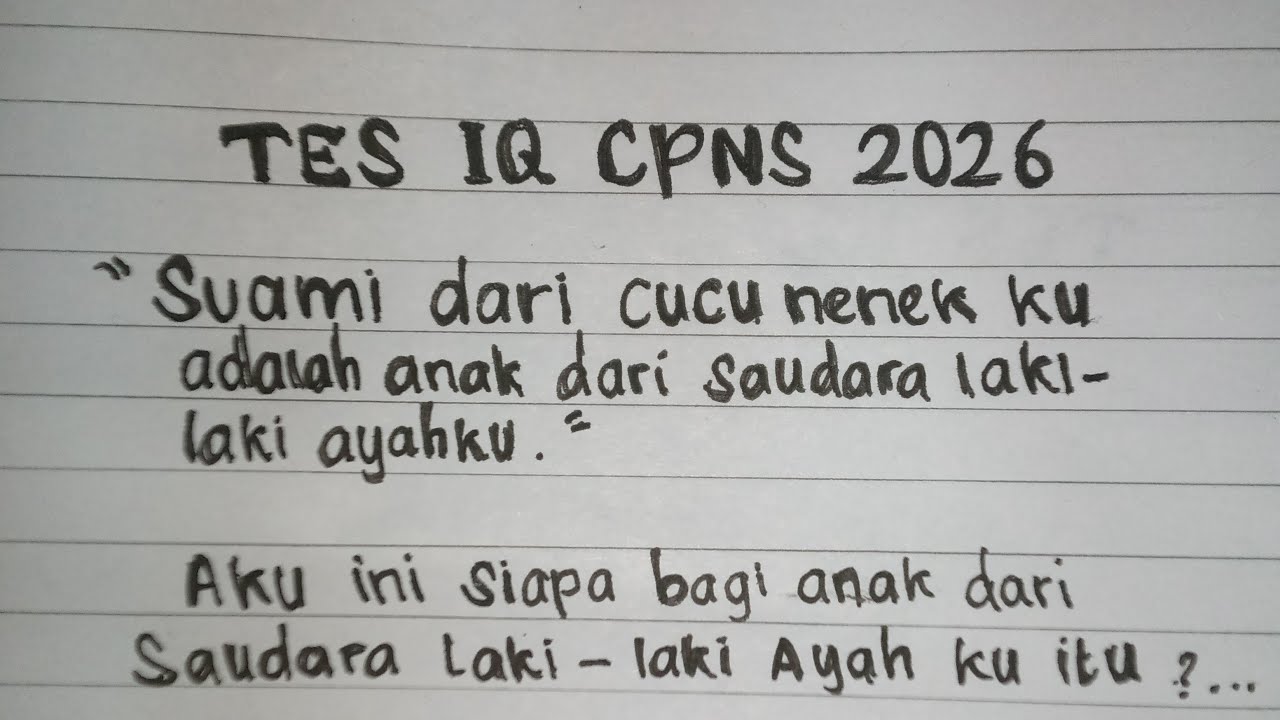 TES IQ CPNS 2026
"Suami dari cucu nenek ku
adalah anak dari saudara laki-
laki ayahku."
Aku ini siapa bagi anak dari
Saudara Laki-laki Ayah ku itu ?...